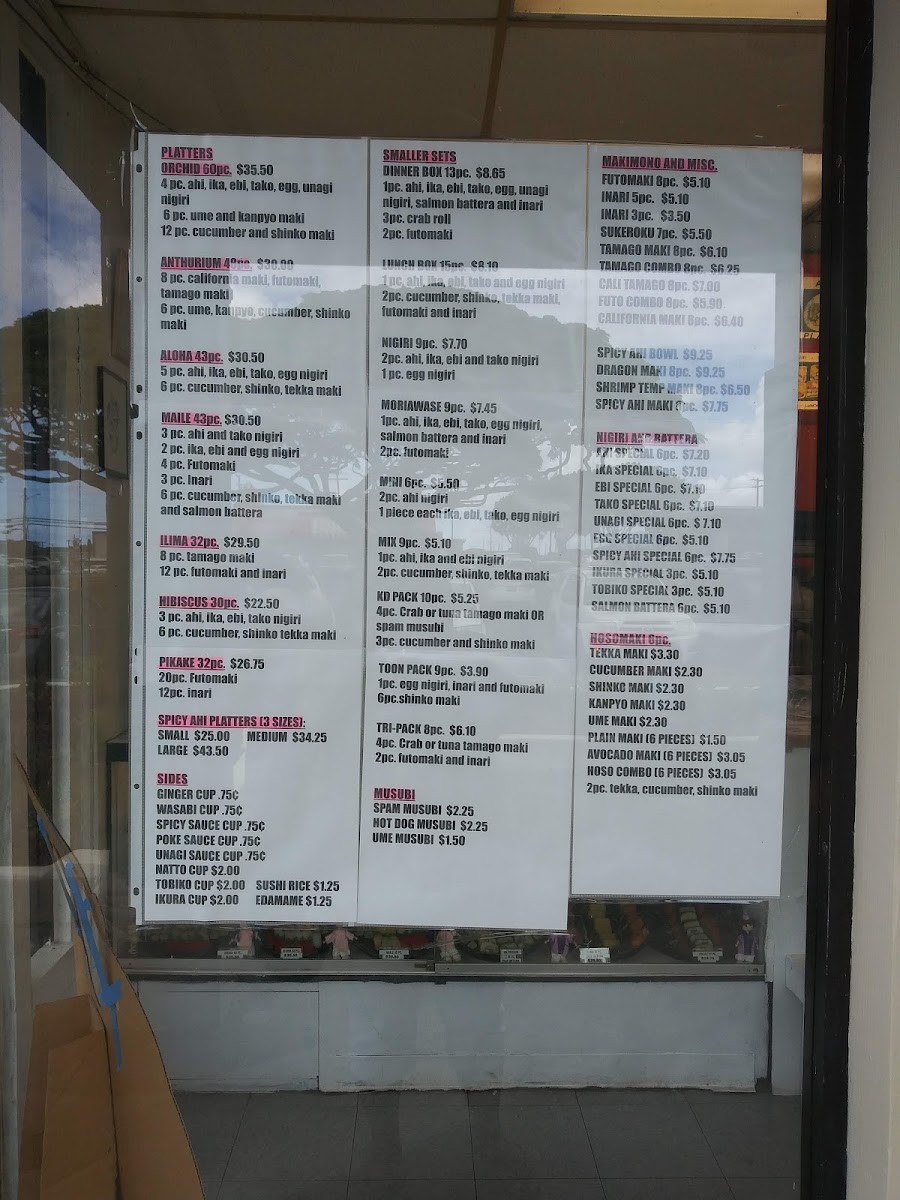 PLATTERS
ORCHID 60pc. $35.50
4 pc. ahi, ika, ebi, tako, egg, unagi
nigiri
6 pc. ume and kanpyo maki
12 pc. cucumber and shinko maki
ANTHURIUM 48pc. $30.00
8 pc. california maki, futomaki,
tamago maki
6 pc. ume, kanpyo, cucumber, shinko
maki
ALOHA 43pc. $30.50
5 pc. ahi, ika, ebi, tako, egg nigiri
6 pc. cucumber, shinko, tekka maki
MAILE 43pc. $30.50
3 pc. ahi and tako nigiri
2 pc. ika, ebi and egg nigiri
4 pc. Futomaki
3 pc. Inari
6 pc. cucumber, shinko, tekka maki
and salmon battera
ILIMA 32pc. $29.50
8 pc. tamago maki
12 pc. futomaki and inari
HIBISCUS 30pc. $22.50
3 pc. ahi, ika, ebi, tako nigiri
6 pc. cucumber, shinko tekka maki
PIKAKE 32pc. $26.75
20pc. Futomaki
12pc. inari
SPICY AHI PLATTERS (3 SIZES):
SMALL $25.00 MEDIUM $34.25
LARGE $43.50
SIDES
GINGER CUP .75¢
WASABI CUP .75¢
SPICY SAUCE CUP .75¢
POKE SAUCE CUP .75¢
UNAGI SAUCE CUP .75¢
NATTO CUP $2.00
TOBIKO CUP $2.00 SUSHI RICE $1.25
IKURA CUP $2.00 EDAMAME $1.25
SMALLER SETS
DINNER BOX 13pc. $8.65
1pc. ahi, ika, ebi, tako, egg, unagi
nigiri, salmon battera and inari
3pc. crab roll
2pc. futomaki
LUNCH BOX 15pc. $8.10
1 pc. ahi, ika, ebi, tako and egg nigiri
2pc. cucumber, shinko, tekka maki,
futomaki and inari
NIGIRI 9pc. $7.70
2pc. ahi, ika, ebi and tako nigiri
1 pc. egg nigiri
MORIAWASE 9pc. $7.45
1pc. ahi, ika, ebi, tako, egg nigiri,
salmon battera and inari
2pc. futomaki
MINI 6pc. $5.50
2pc. ahi nigiri
1 piece each ika, ebi, tako, egg nigiri
MIX 9pc. $5.10
1pc. ahi, ika and ebi nigiri
2pc. cucumber, shinko, tekka maki
KD PACK 10pc. $5.25
4pc. Crab or tuna tamago maki OR
spam musubi
3pc. cucumber and shinko maki
TOON PACK 9pc. $3.90
1pc. egg nigiri, inari and futomaki
6pc.shinko maki
TRI-PACK 8pc. $6.10
4pc. Crab or tuna tamago maki
2pc. futomaki and inari
MUSUBI
SPAM MUSUBI $2.25
HOT DOG MUSUBI $2.25
UME MUSUBI $1.50
MAKIMONO AND MISC.
FUTOMAKI 8pc. $5.10
INARI 5pc. $5.10
INARI 3pc. $3.50
SUKEROKU 7pc. $5.50
TAMAGO MAKI 8pc. $6.10
TAMAGO COMBO 8pc. $6.25
CALI TAMAGO 8pc. $7.00
FUTO COMBO 8pc. $5.90
CALIFORNIA MAKI 8pc. $6.40
SPICY AHI BOWL $9.25
DRAGON MAKI 8pc. $9.25
SHRIMP TEMP MAKI 8pc. $6.50
SPICY AHI MAKI 8pc. $7.75
NIGIRI AND BATTERA
AHI SPECIAL 6pc. $7.20
IKA SPECIAL 6pc. $7.10
EBI SPECIAL 6pc. $7.10
TAKO SPECIAL 6pc. $7.10
UNAGI SPECIAL 6pc. $ 7.10
EGG SPECIAL 6pc. $5.10
SPICY AHI SPECIAL 6pc. $7.75
IKURA SPECIAL 3pc. $5.10
TOBIKO SPECIAL 3pc. $5.10
SALMON BATTERA 6pc. $5.10
HOSOMAKI 6pc.
TEKKA MAKI $3.30
CUCUMBER MAKI $2.30
SHINKO MAKI $2.30
KANPYO MAKI $2.30
UME MAKI $2.30
PLAIN MAKI (6 PIECES) $1.50
AVOCADO MAKI (6 PIECES) $3.05
HOSO COMBO (6 PIECES) $3.05
2pc. tekka, cucumber, shinko maki